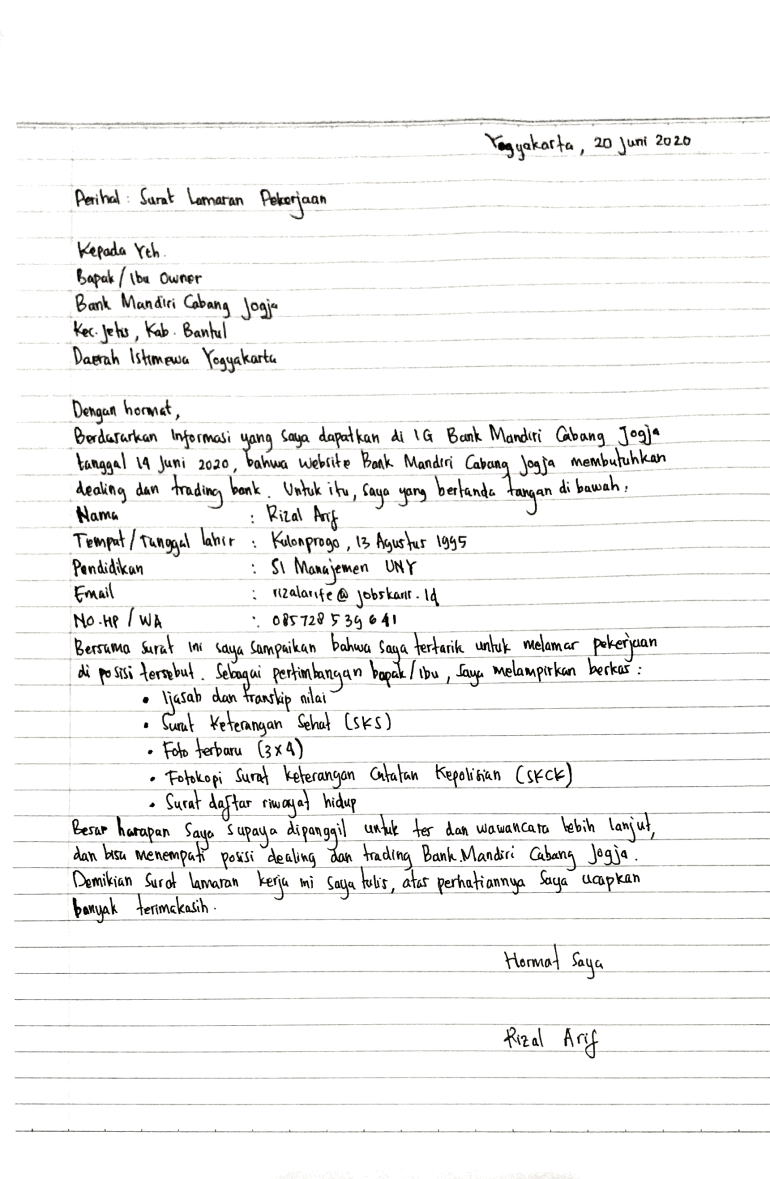 Yogyakarta, 20 Juni 2020
Perihal : Surat Lamaran Pekerjaan
Kepada Yth.
Bapak / Ibu Owner
Bank Mandiri Cabang Jogja
Kec. Jetis, Kab. Bantul
Daerah Istimewa Yogyakarta
Dengan hormat,
Berdasarkan Informasi yang saya dapatkan di IG Bank Mandiri Cabang Jogja
tanggal 19 Juni 2020, bahwa website Bank Mandiri Cabang Jogja membutuhkan
dealing dan trading bank. Untuk itu, saya yang bertanda tangan di bawah :
Nama : Rizal Arif
Tempat / Tanggal lahir : Kulonprogo, 13 Agustus 1995
Pendidikan : S1 Manajemen UNY
Email : rizalarife@jobskarir.id
No.HP / WA : 085728539641
Bersama surat ini saya sampaikan bahwa saya tertarik untuk melamar pekerjaan
di posisi tersebut. Sebagai pertimbangan bapak/ibu, saya melampirkan berkas :
• Ijasab dan transkip nilai
• Surat Keterangan Sehat (SKS)
• Foto terbaru (3x4)
• Fotokopi Surat keterangan Catatan Kepolisian (SKCK)
• Surat daftar riwayat hidup
Besar harapan Saya supaya dipanggil untuk tes dan wawancara lebih lanjut,
dan bisa menempati posisi dealing dan trading Bank Mandiri Cabang Jogja.
Demikian surat lamaran kerja ini saya tulis, atas perhatiannya saya ucapkan
banyak terimakasih.
Hormat Saya
Rizal Arif